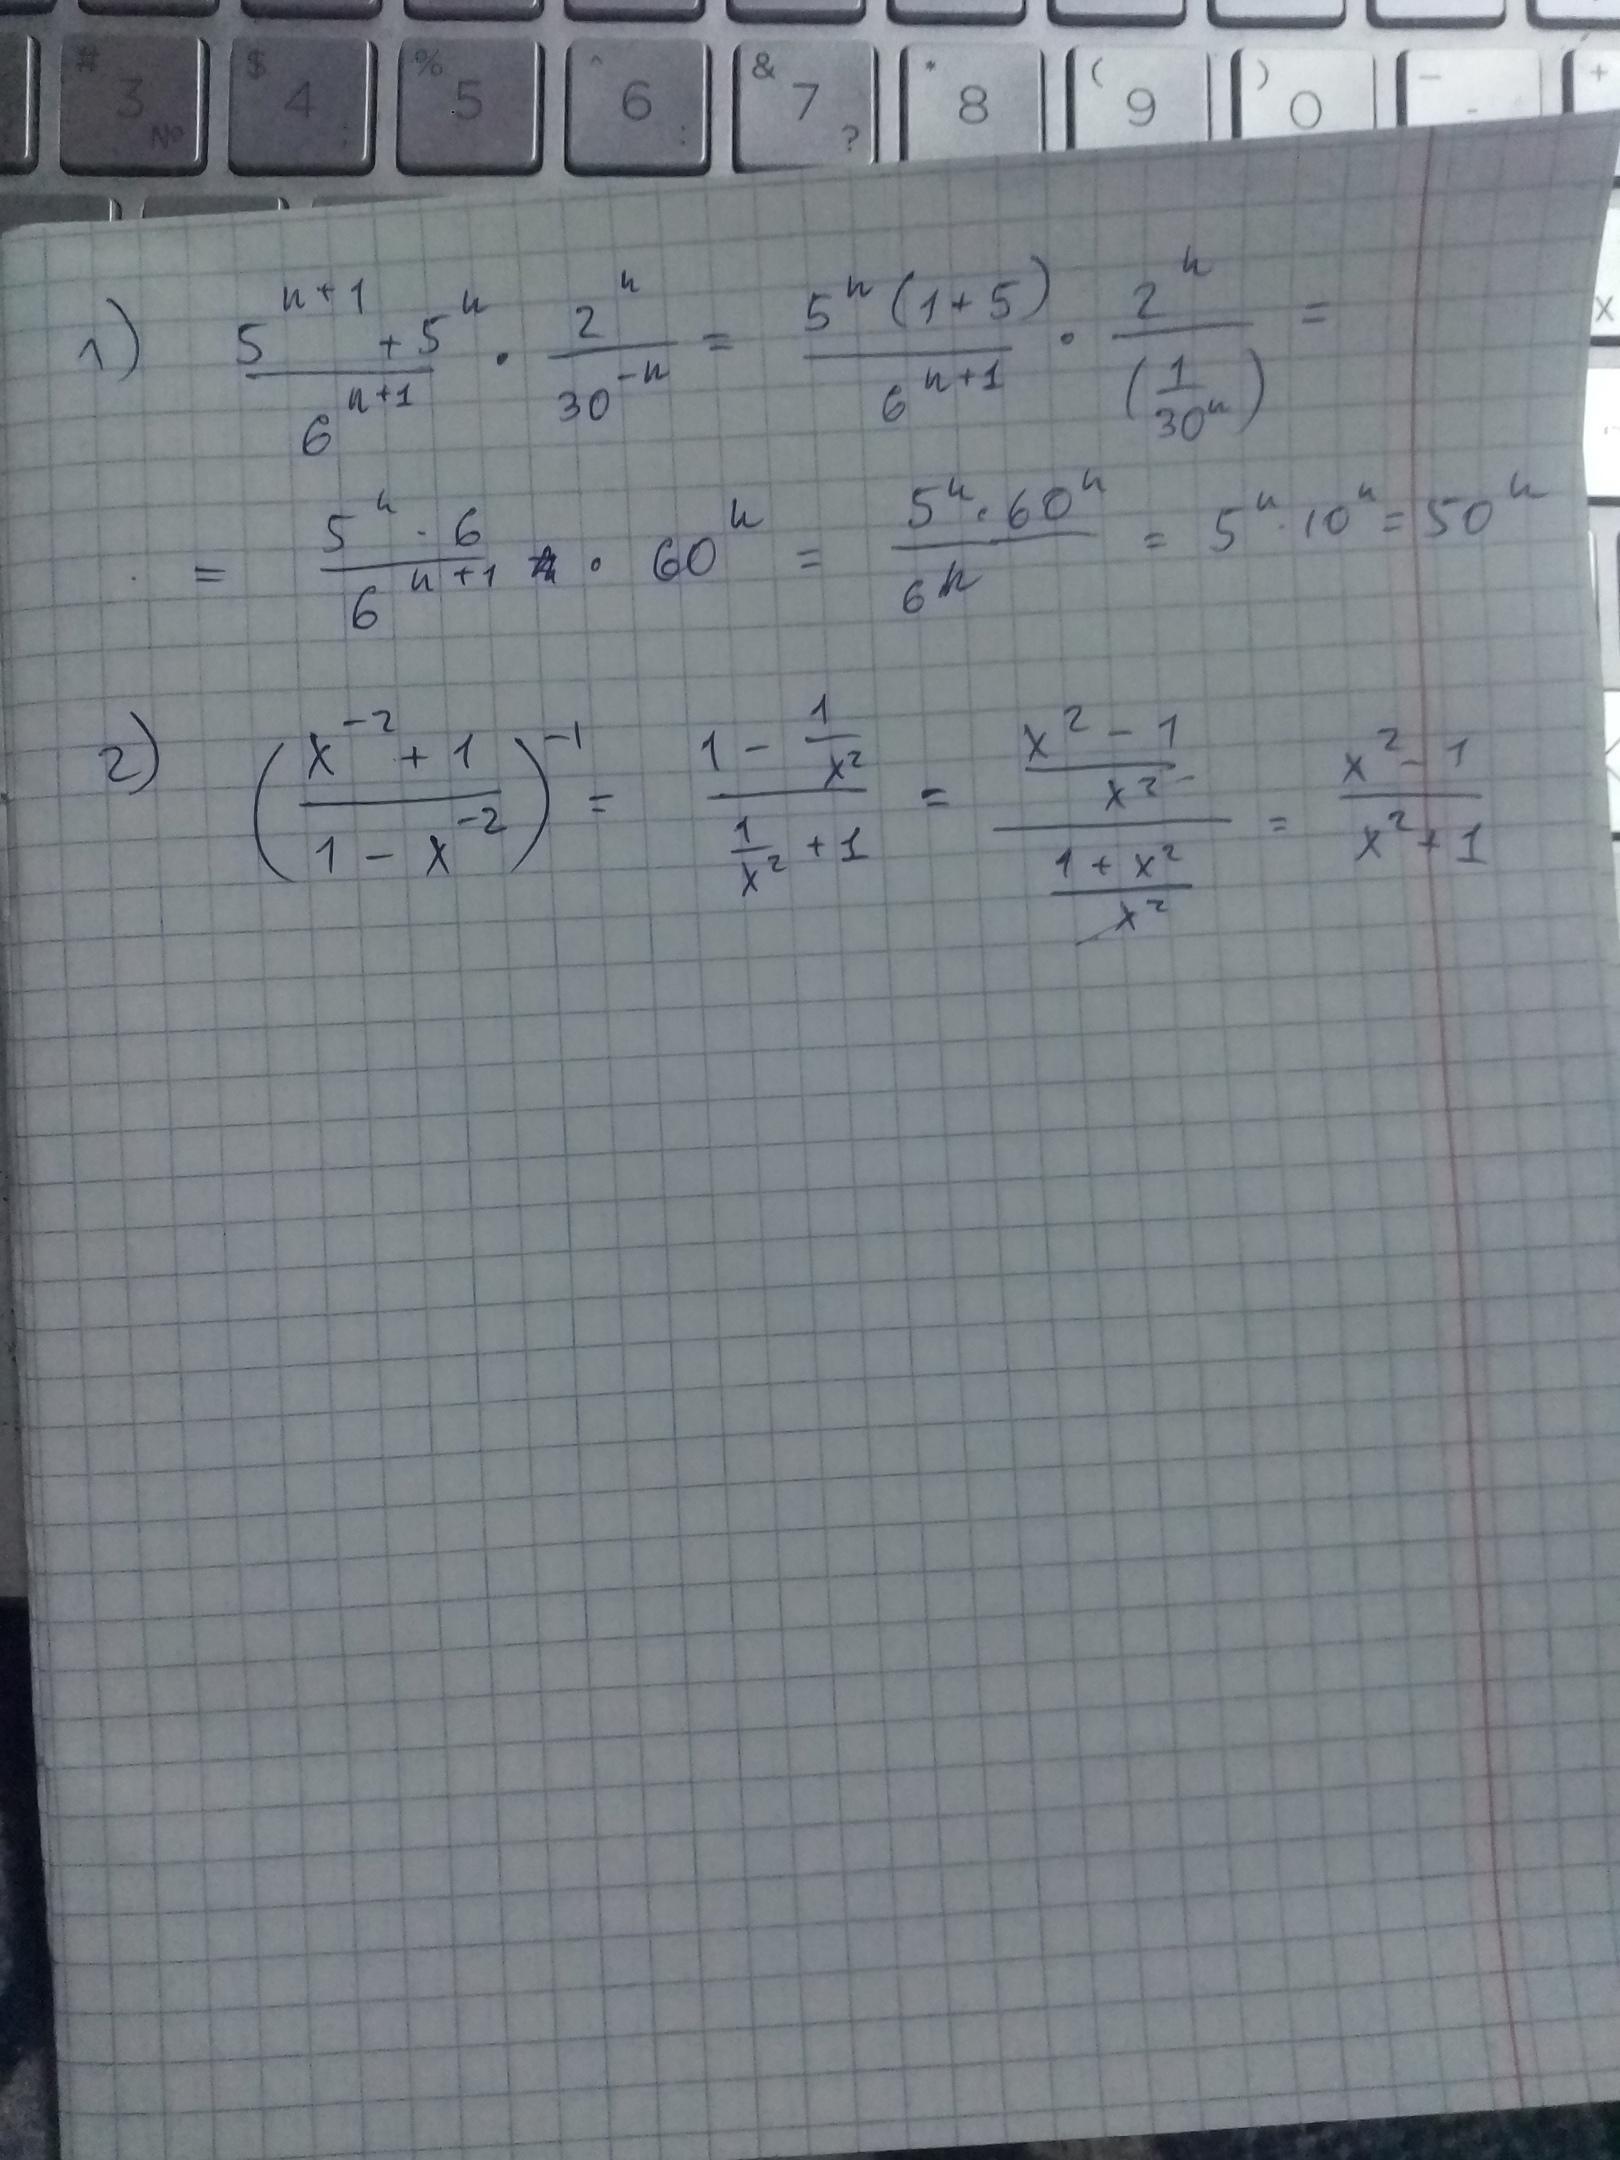 # 3 № $ 4 ; % 5 ^ 6 : & 7 ? * 8 ( 9 ) 0 _ - +
x
1) (5^(n+1) + 5^n)/6^(n+1) · 2^n/30^(-n) = 5^n (1+5)/6^(n+1) · 2^n/(1/30^n) =
= (5^n · 6)/6^(n+1) · 60^n = (5^n · 60^n)/6^n = 5^n · 10^n = 50^n
2) ((x^(-2) + 1)/(1 - x^(-2)))^(-1) = (1 - 1/x^2)/(1/x^2 + 1) = ((x^2 - 1)/x^2)/((1 + x^2)/x^2) = (x^2 - 1)/(x^2 + 1)